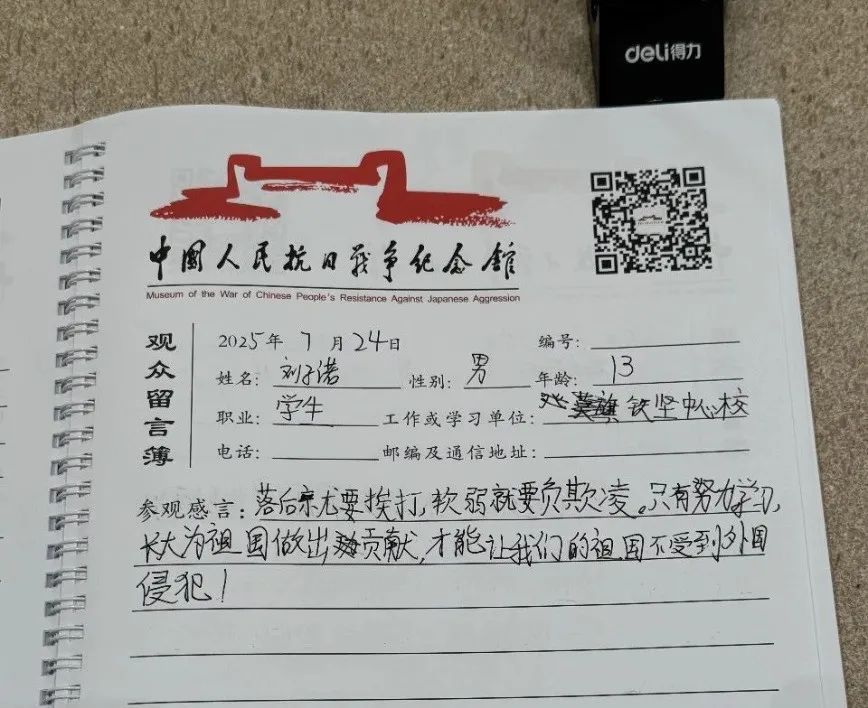 deli得力
中国人民抗日战争纪念馆
Museum of the War of Chinese People's Resistance Against Japanese Aggression
观众留言簿
2025年 7月24日 编号:
姓名: 刘子诺 性别: 男 年龄: 13
职业: 学生 工作或学习单位: 莫旗铁坚中心校
电话: 邮编及通信地址:
参观感言: 落后就尤要挨打,软弱就要负欺凌。只有努力学习,
长大为祖国做出贡献,才能让我们的祖国不受到外国
侵犯!